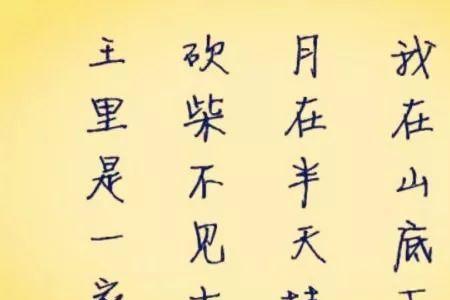 我在山底
月在半天
砍柴不见
王里是一